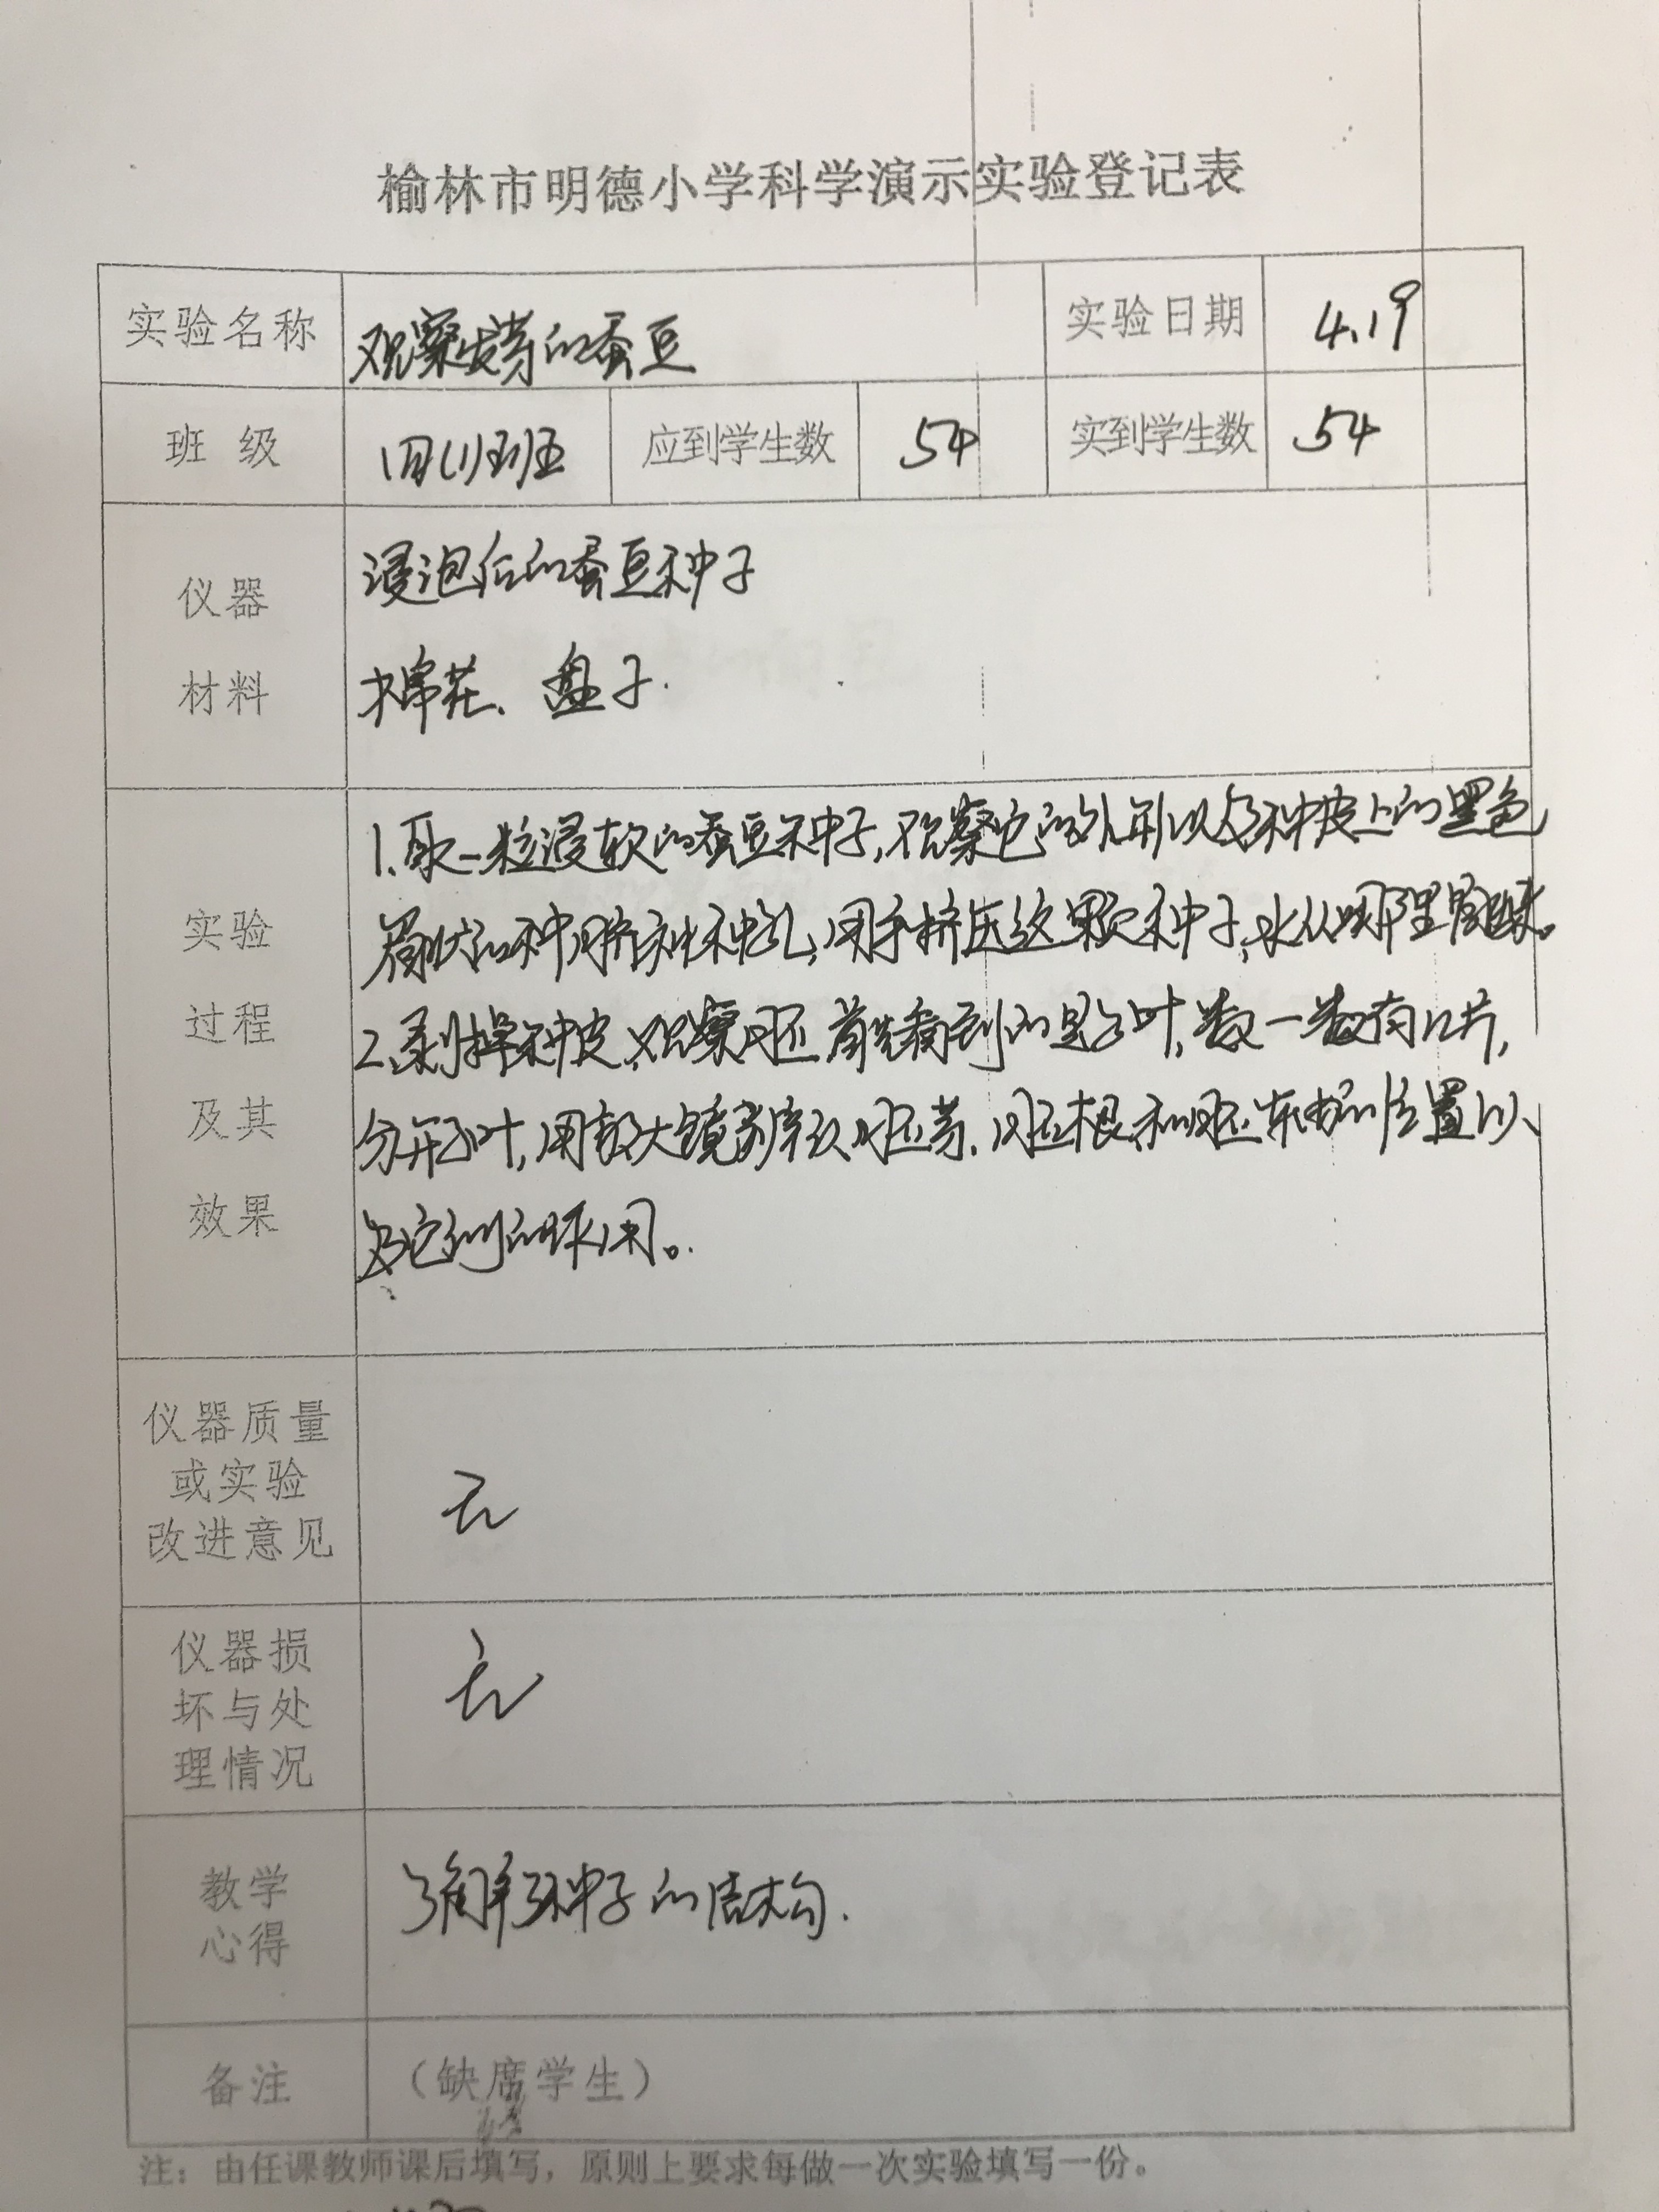 榆林市明德小学科学演示实验登记表
实验名称 观察发芽的蚕豆 实验日期 4.19
班 级 四(1)班 应到学生数 54 实到学生数 54
仪器 浸泡后的蚕豆种子
材料 棉花、盘子.
1.取一粒浸软的蚕豆种子,观察它的外形以及种皮上的黑色
实验 眉状的种脐和种孔,用手挤压这颗种子,水从哪里冒出来。
过程 2.剥掉种皮,观察胚首先看到的是子叶,数一数有几片,
及其 分开子叶,用放大镜辨认胚芽、胚根和胚轴的位置以
效果 及它们的作用。
仪器质量
或实验 无
改进意见
仪器损
坏与处 无
理情况
教学 了解了种子的结构.
心得
备注 (缺席学生)
注:由任课教师课后填写,原则上要求每做一次实验填写一份。